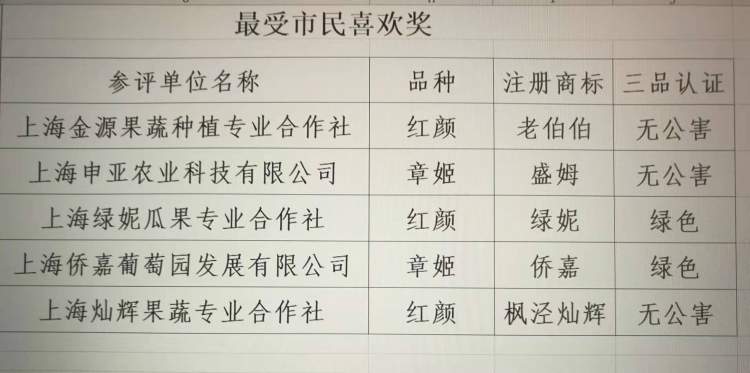 最受市民喜欢奖
参评单位名称 品种 注册商标 三品认证
上海金源果蔬种植专业合作社 红颜 老伯伯 无公害
上海申亚农业科技有限公司 章姬 盛姆 无公害
上海绿妮瓜果专业合作社 红颜 绿妮 绿色
上海侨嘉葡萄园发展有限公司 章姬 侨嘉 绿色
上海灿辉果蔬专业合作社 红颜 枫泾灿辉 无公害